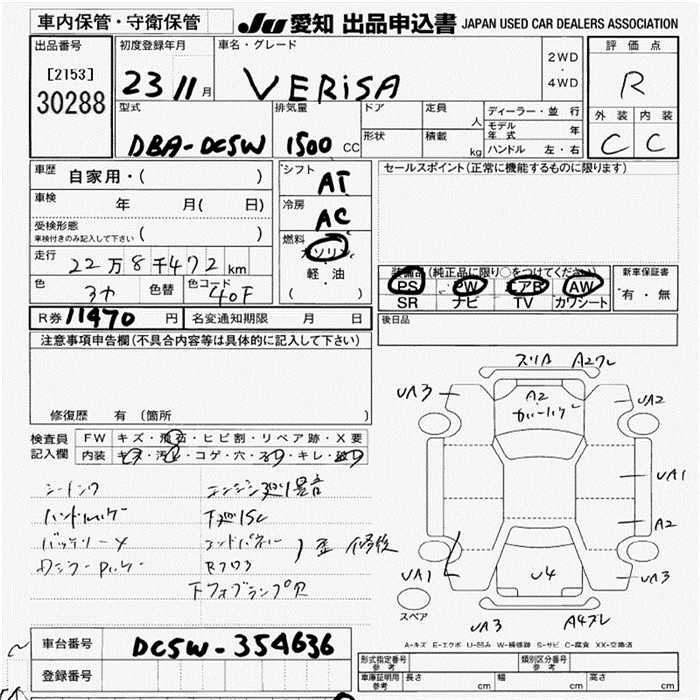 車内保管・守衛保管
JU 愛知 出品申込書 JAPAN USED CAR DEALERS ASSOCIATION
出品番号
[2153]
30288
初度登録年月
23 11 月
車名・グレード
VERiSA
2WD
・
4WD
評価点
R
外装 内装
C C
型式
DBA-DC5W
排気量
1500 CC
ドア
定員
人
形状
積載
kg
ディーラー・並行
モデル年式 年
ハンドル 左・右
車歴
自家用・( )
車検
年 月( 日)
受検形態
車検付きのみ記入して下さい ( )
走行
22万8千472km
色
色替
色コード
40F
シフト
AT
冷房
AC
燃料
ガソリン
・
軽・油
( )
セールスポイント(正常に機能するものに限ります)
装備品(純正品に限り○をつけてください)
PS PW エアB AW
SR ナビ TV カワシート
新車保証書
有・無
R券 11470 円
名変通知期限 月 日
後日品
注意事項申告欄(不具合内容等は具体的に記入して下さい)
修復歴 有 (箇所 )
検査員記入欄
FW キズ・飛石・ヒビ割・リペア跡・X要
内装 キズ・汚れ・コゲ・穴・・キレ・
エンジン廻り異音
下廻りSC
下フォグランプ穴
A2
UA3
UA2
UA1
A2
UA3
UA1
U4
UA3
スペア
A-キズ E-エクボ U-凹み W-補修跡 S-サビ C-腐食 XX-交換済
車台番号
DC5W-354636
登録番号
形式指定番号 参考
類別区分番号 参考
車庫証明用 参考 長さ cm 幅 cm 高さ cm